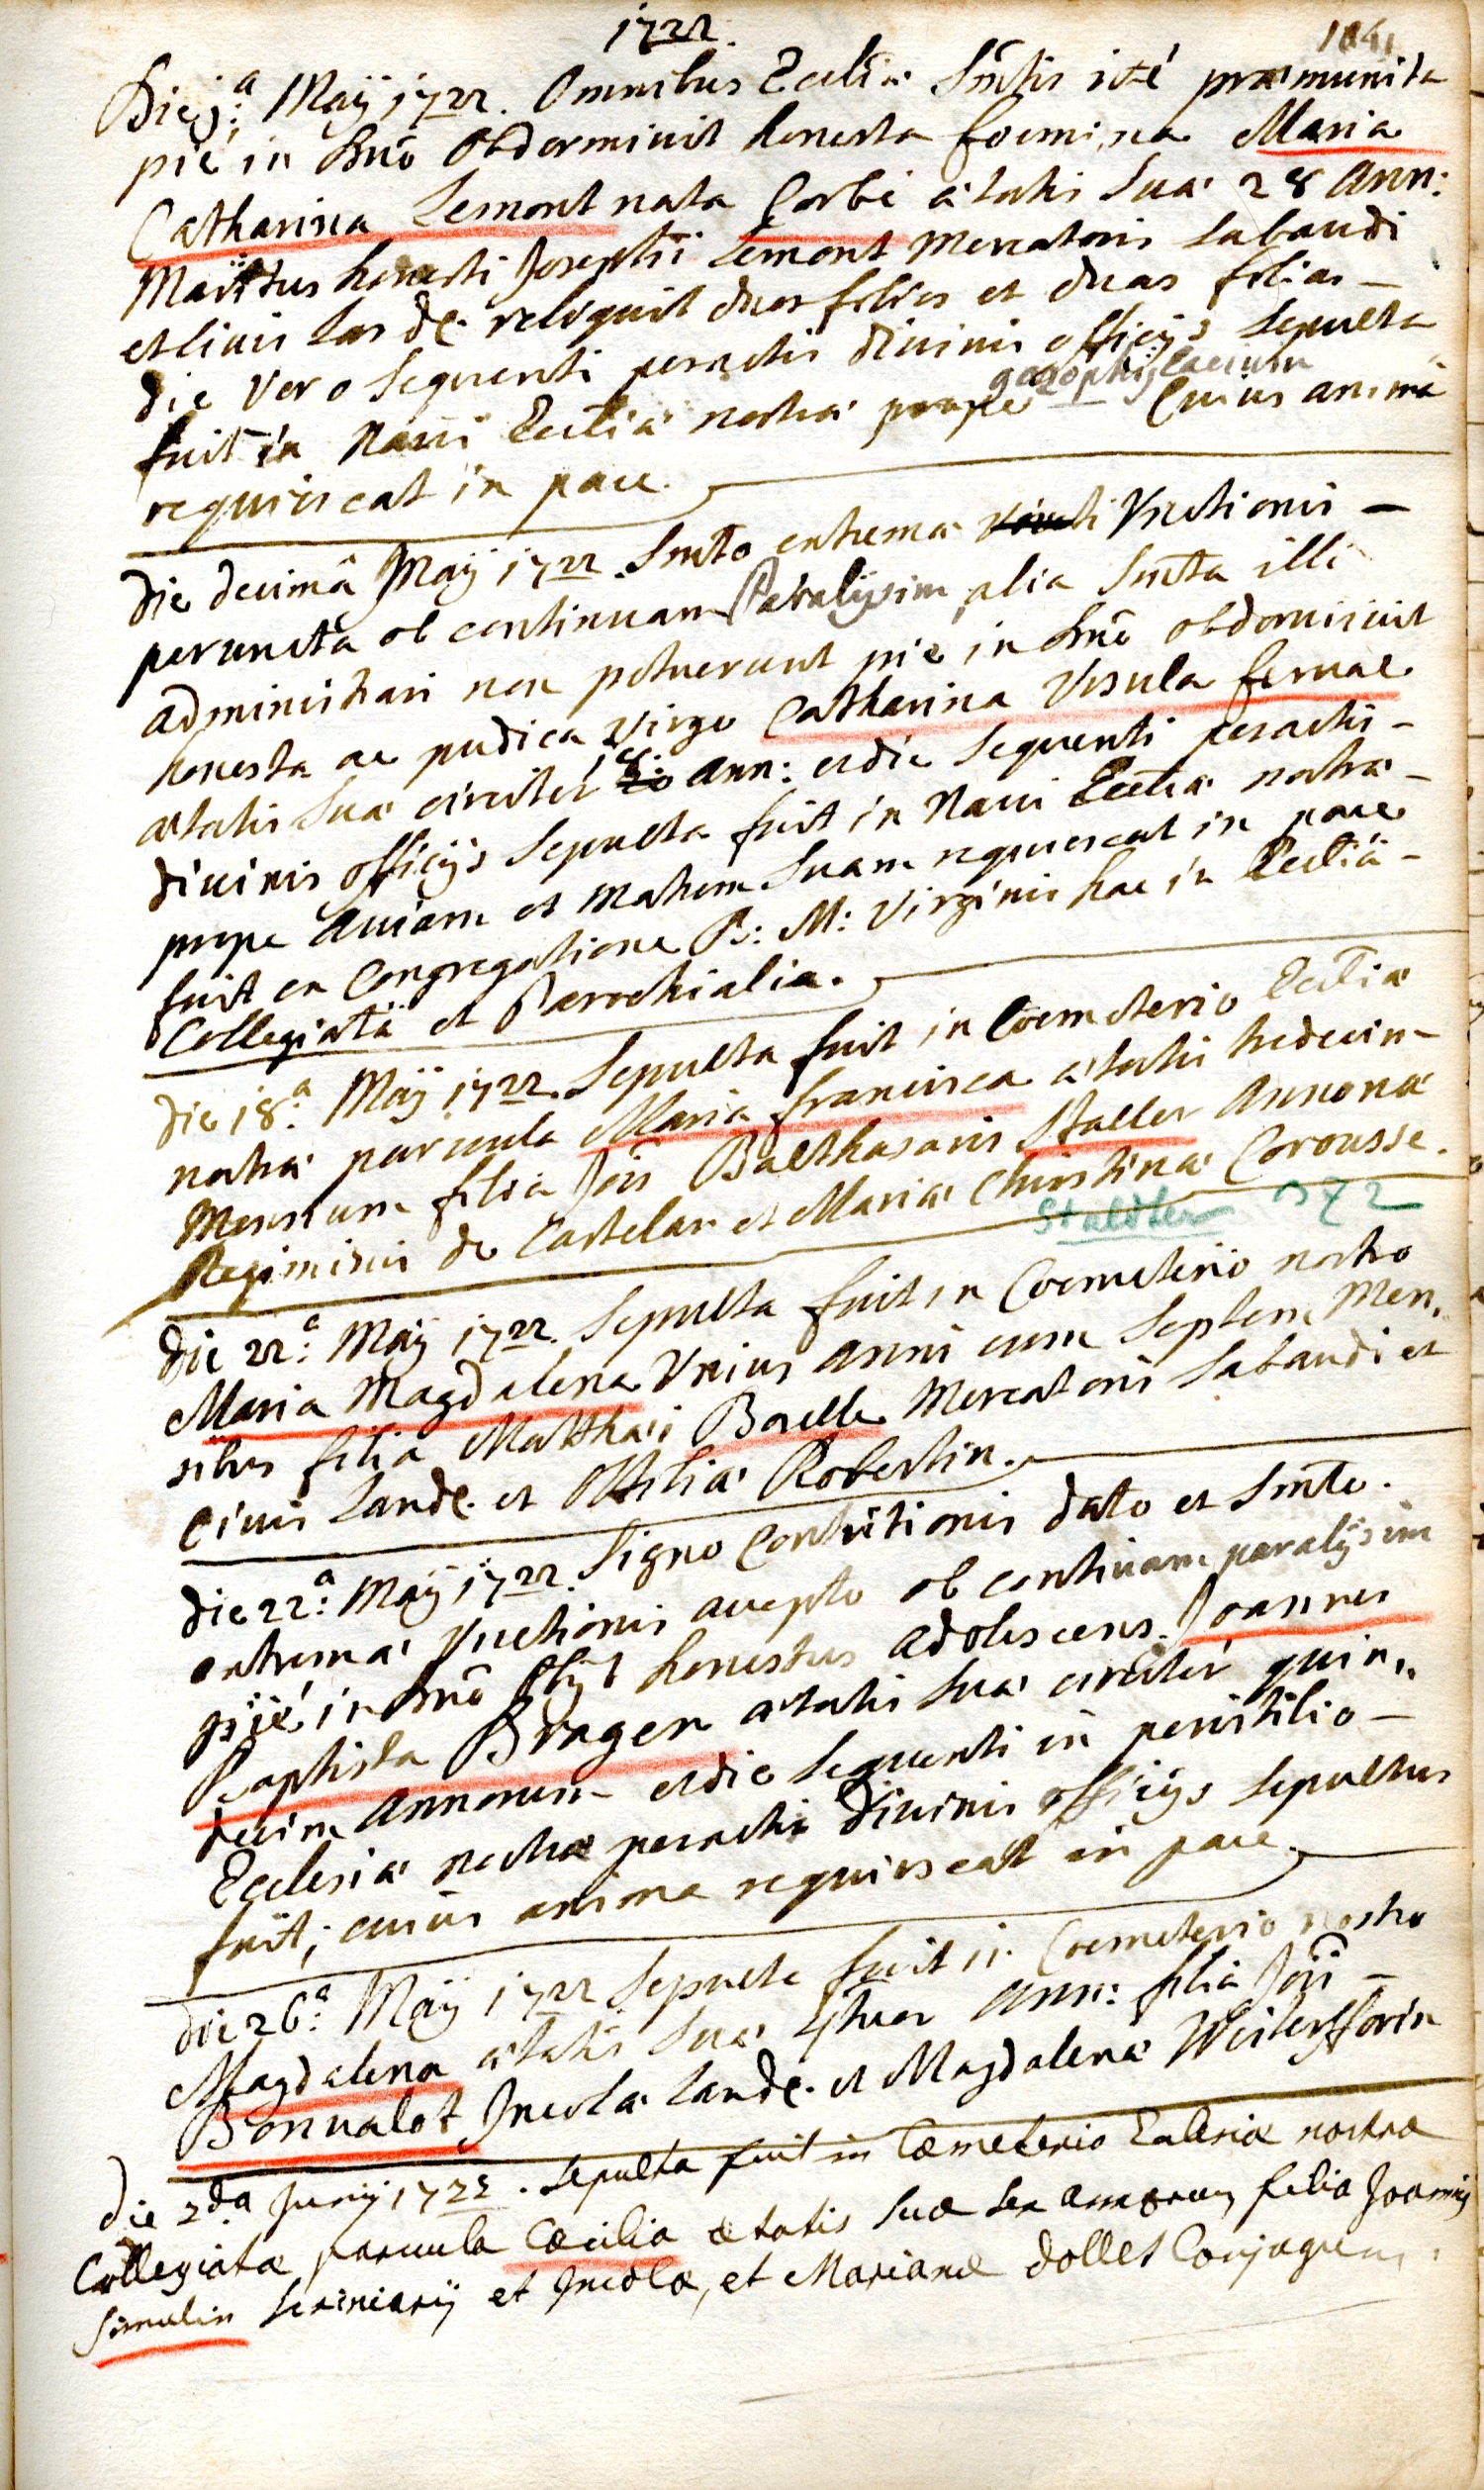 1722.
104
Die j:a Maÿ 1722. Omnibus Ecclia Smtis ité præmunita
pié in Dnō Obdormiuit honesta foemina Maria
Catharina Lemont nata Corbé ætatis Sua 28 Ann:
honesti Josephi Lemont Mercatoris Sabaudi
et Ciuis Lande. reliquit duos filios et duas filias —
die vero Sequenti peractis diuinis officÿs Sepulta
fuit in Naui Eccliæ nostræ prope gazophÿlacium Cuius anima
requiescat in pace.
Die decimâ Maÿ 1722. Smto extremæ Unctionis —
peruncta ob continuam Paralÿsim, alia Smta illi
administrari non potuerunt pié in Dnō obdormiuit
honesta ac pudica virgo Catharina Vrsula
ætatis Suæ circiter 18: ann: et die Sequenti peractis —
diuinis officÿs Sepulta fuit in Naui Eccliæ nostræ —
prope Auiam et Matrem Suam requiescat in pace
fuit ex Congregatione B: M: Virginis hac in Eccliâ —
Collegiatâ et Parochialia.
Die 18:a Maÿ 1722. Sepulta fuit in Coemeterio Eccliæ
nostræ paruula Maria francisca ætatis tredecim
Mensium filia Jois Balthasaris Staller Annonæ
Regiminis de Castelar et Mariæ Christinæ Corousse.
Staldter 1722
Die 22:a Maÿ 1722. Sepulta fuit in Coemeterio nostro
Maria Magdalena Vnius anni cum Septem Men„
sibus filia Matthæi Baelle Mercatoris Sabaudi et
Ciuis Lande. et Ottiliæ Robertin.
Die 22:a Maÿ 1722. Signo Contritionis dato et Smto.
extremæ Vnctionis accepto ob continuam paralÿsim
pié in Dnō Obÿt honestus adolescens Joannes
Baptista Bragen ætatis Suæ circiter quin„
decim Annorum et die Sequenti in peristilio —
Ecclesiæ nostræ peractis diuinis officÿs Sepultus
fuit; cuius anima requiescat in pace.
Die 26:a Maÿ 1722 Sepulta fuit in Coemeterio nostro
Magdalena ætatis Suæ 4tuor ann: filia Jois —
Bonualot Incolæ Lande. et Magdalenæ Weiterfforin
Die 2da Junÿ 1722. Sepulta fuit in Coemeterio Eclesiæ nostræ
Collegiatæ paruula Cæcilia ætatis suæ sex annorum filia Joannis
Simulin Scriniarÿ et Incolæ, et Marianæ dollet Conjugum.